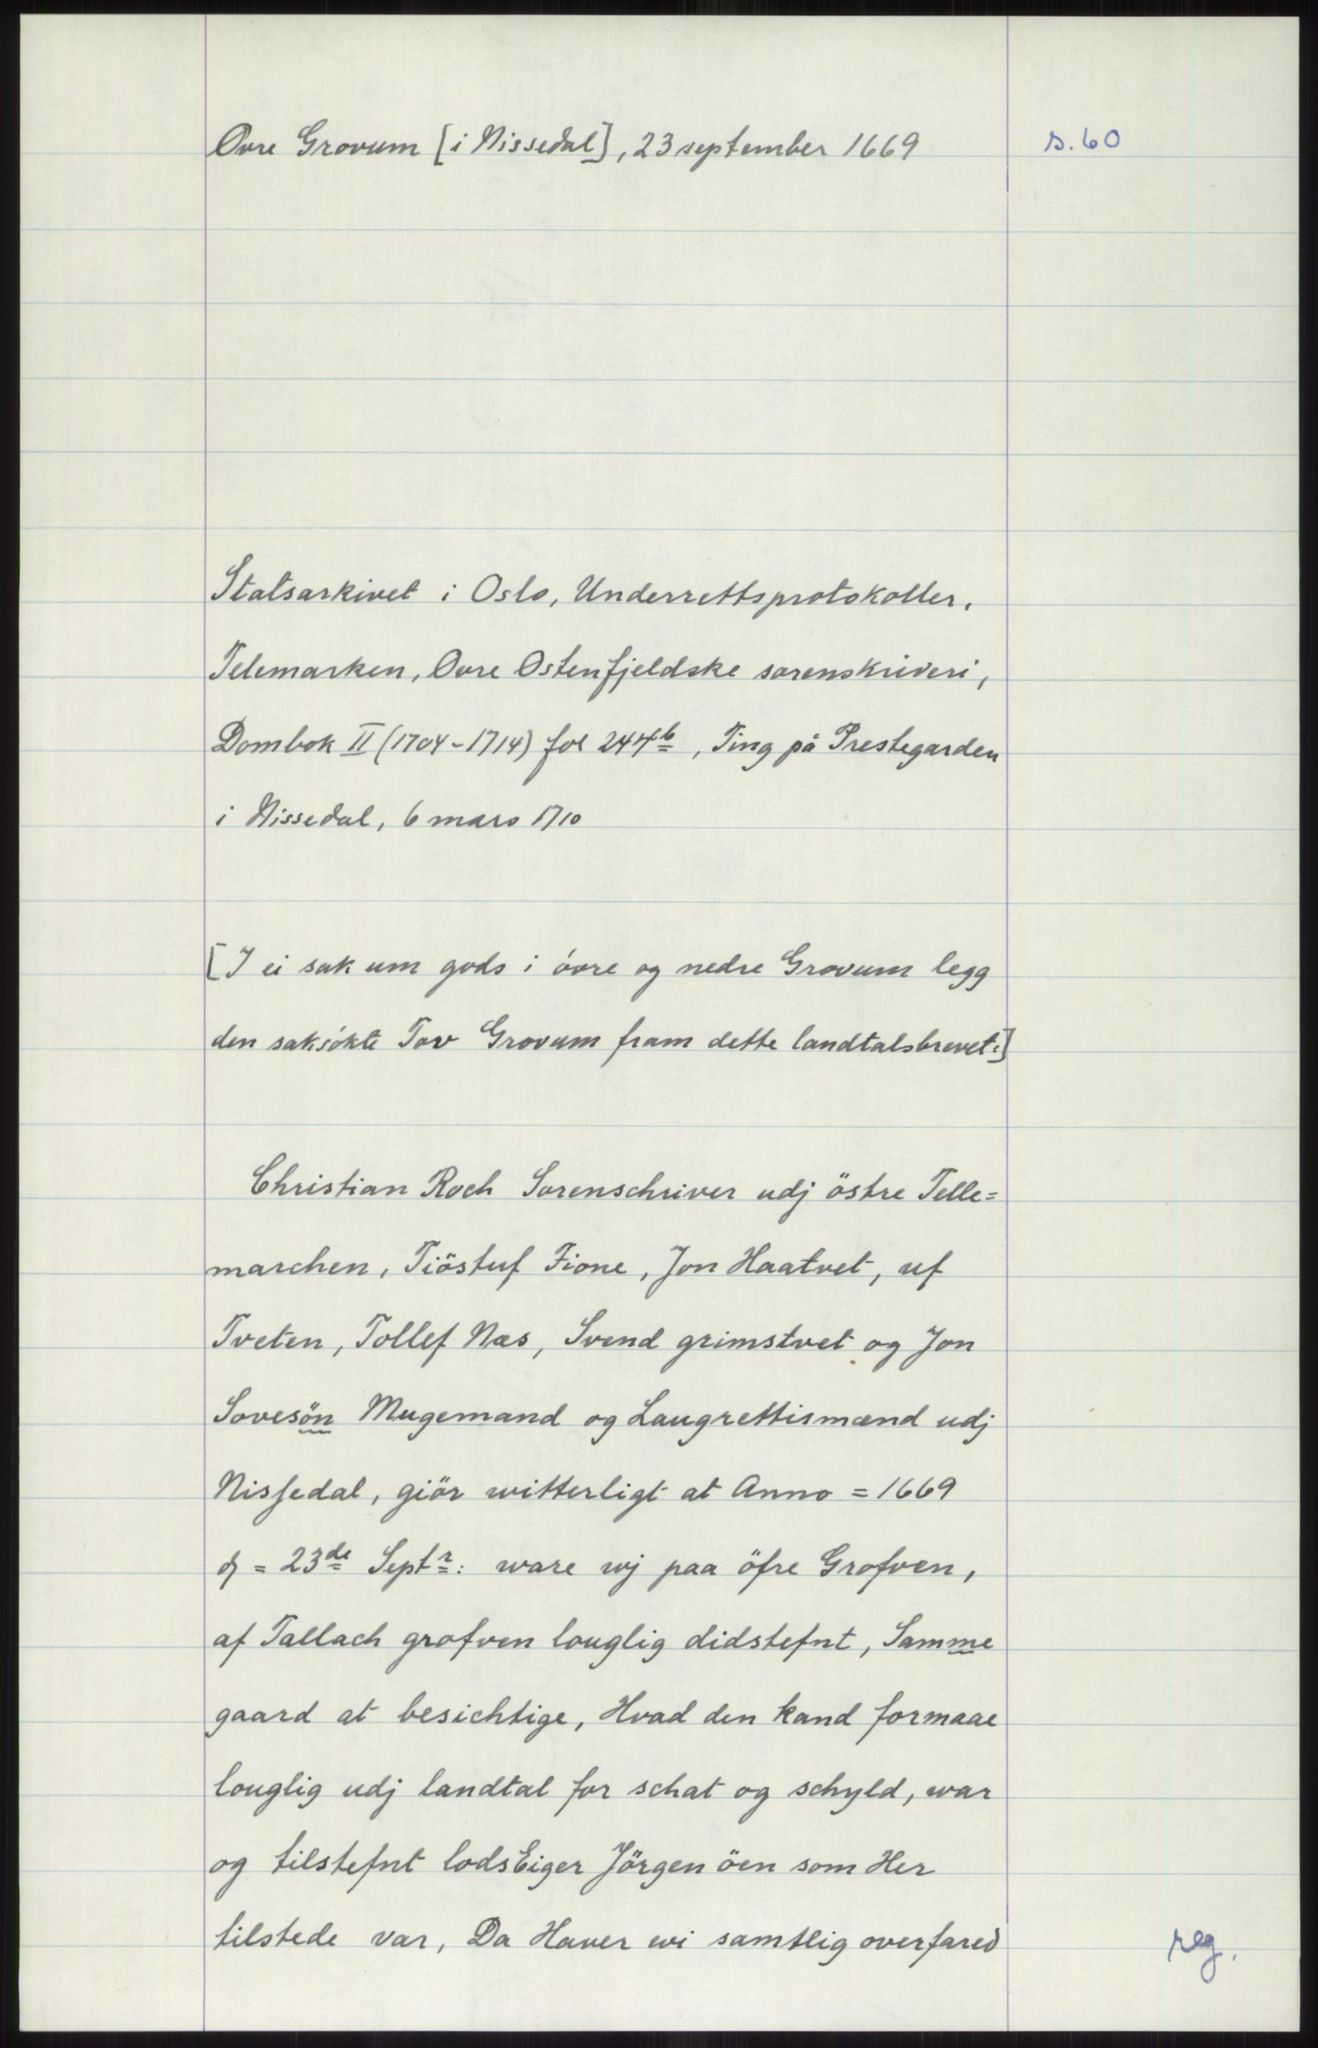 Øvre Grovum [i Nissedal], 23 september 1669
s. 60
Statsarkivet i Oslo, Underrettsprotokoller.
Telemarken, Øvre Østenfjeldske sorenskriveri,
Dombok II (1704-1714) fol 244b, Ting på Prestegarden
i Nissedal, 6 mars 1710
[I ei sak um gods i øvre og nedre Grovum legg
den saksøkte Tov Grovum fram dette landtalsbrevet:]
Christian Roch Sorenschriver udj östre Telle=
marchen, Tiöstuf Fione, Jon Haatvet, uf
Tveten, Tollef Næs, Svend grimstvet og Jon
Sovesön Mugemand og Laugrettismænd udj
Nissedal, giör witterligt at Anno = 1669
d = 23de Septr: ware wj paa öfre Grofven,
af Tallach grofven louglig didstefnt, Samme
gaard at besichtige, Hvad den kand formaae
louglig udj landtal for schat og schyld, war
og tilstefnt lodsEiger Jörgen öen som Her
tilstede var, Da Haver wi samtlig overfared
reg.